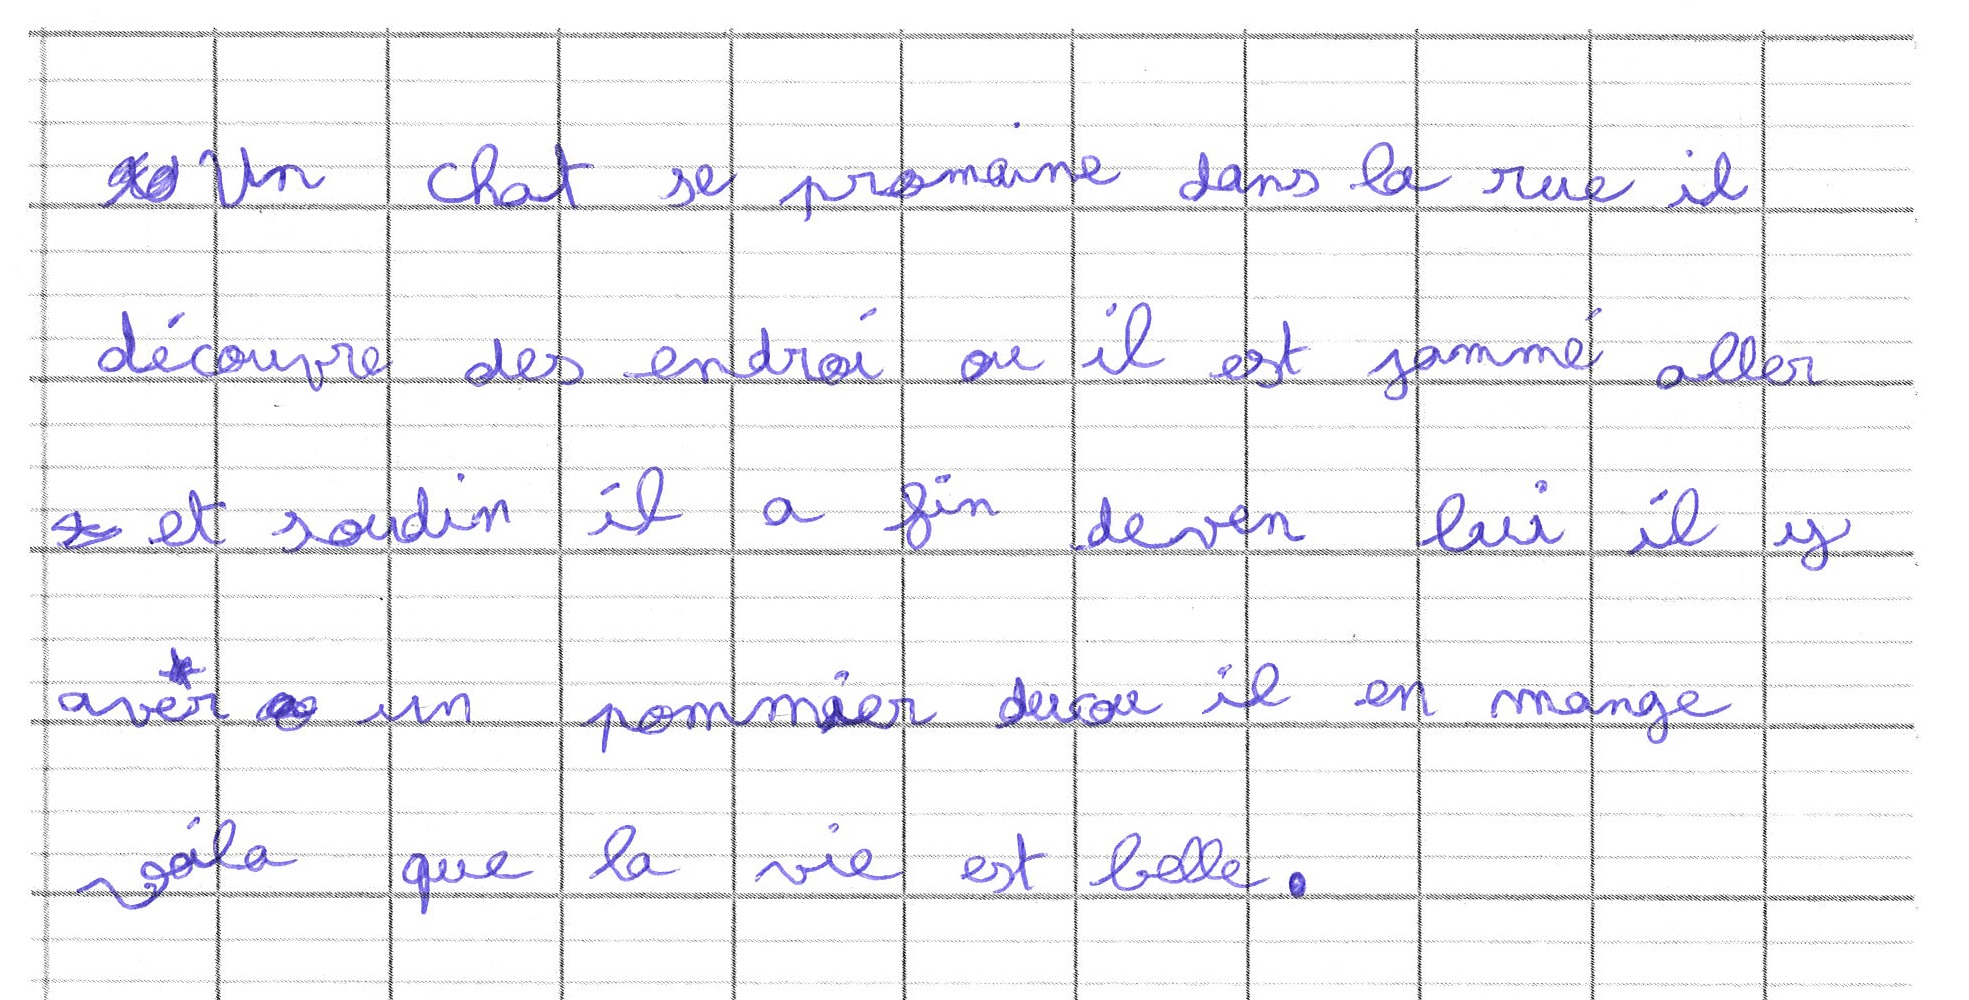 Un chat se promaine dans la rue il
découvre des endroi ou il est jammé aller
et soudin il a fin deven lui il y
avér un pommier ducou il en mange
voila que la vie est belle.